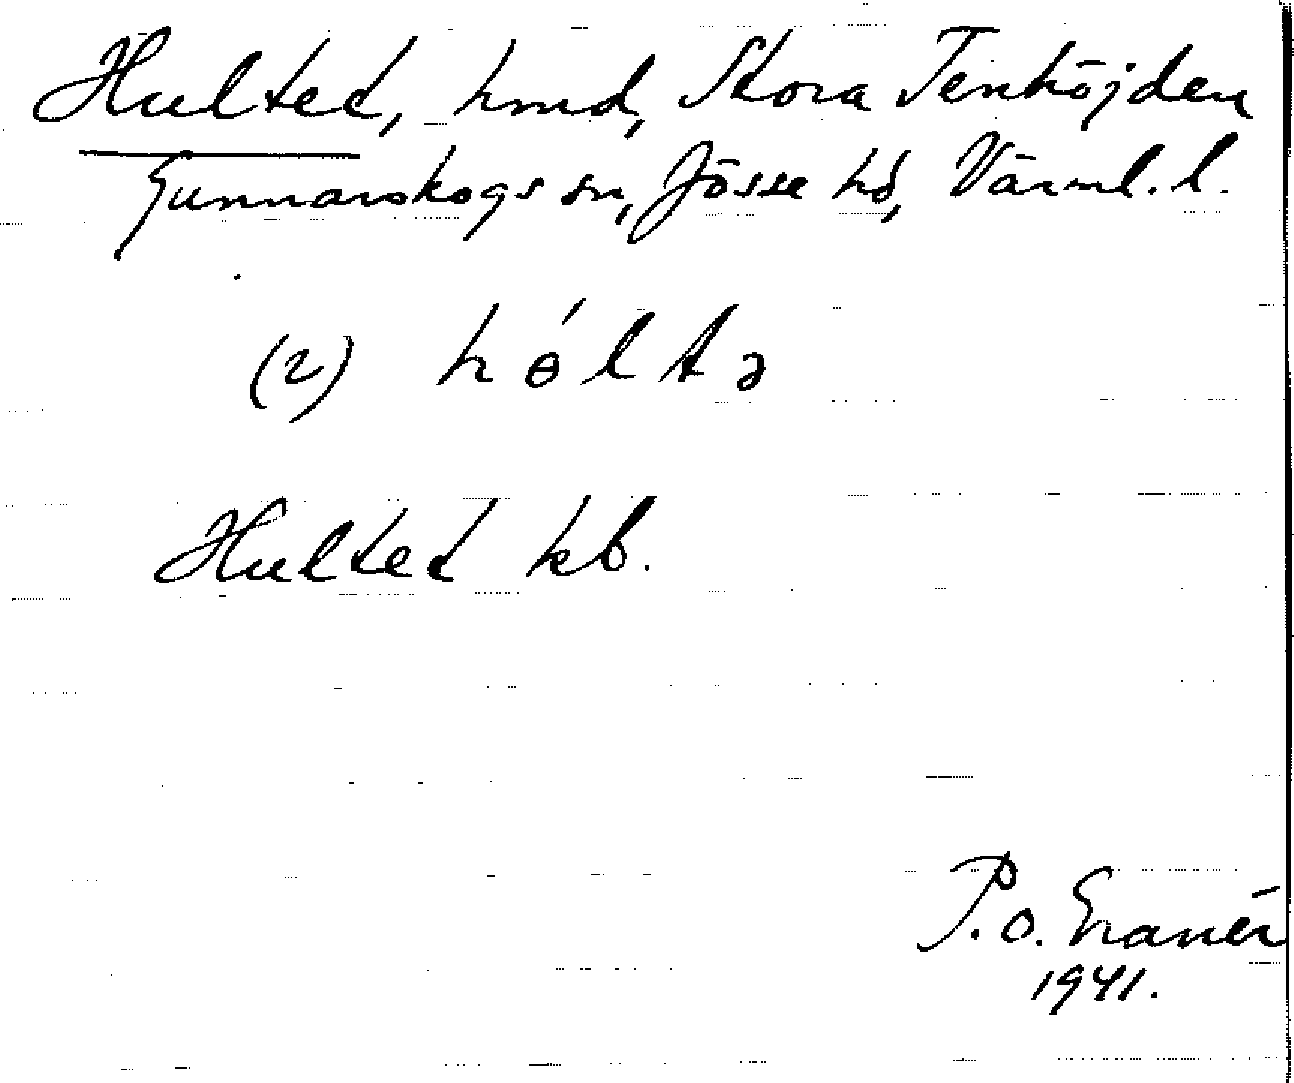 Hultet, hmd, Stora Tenhöjden
Gunnarskogs sn, Jösse hd, Värml. l.
(2) hө́ltə
Hultet kb.
P. O.
1941.